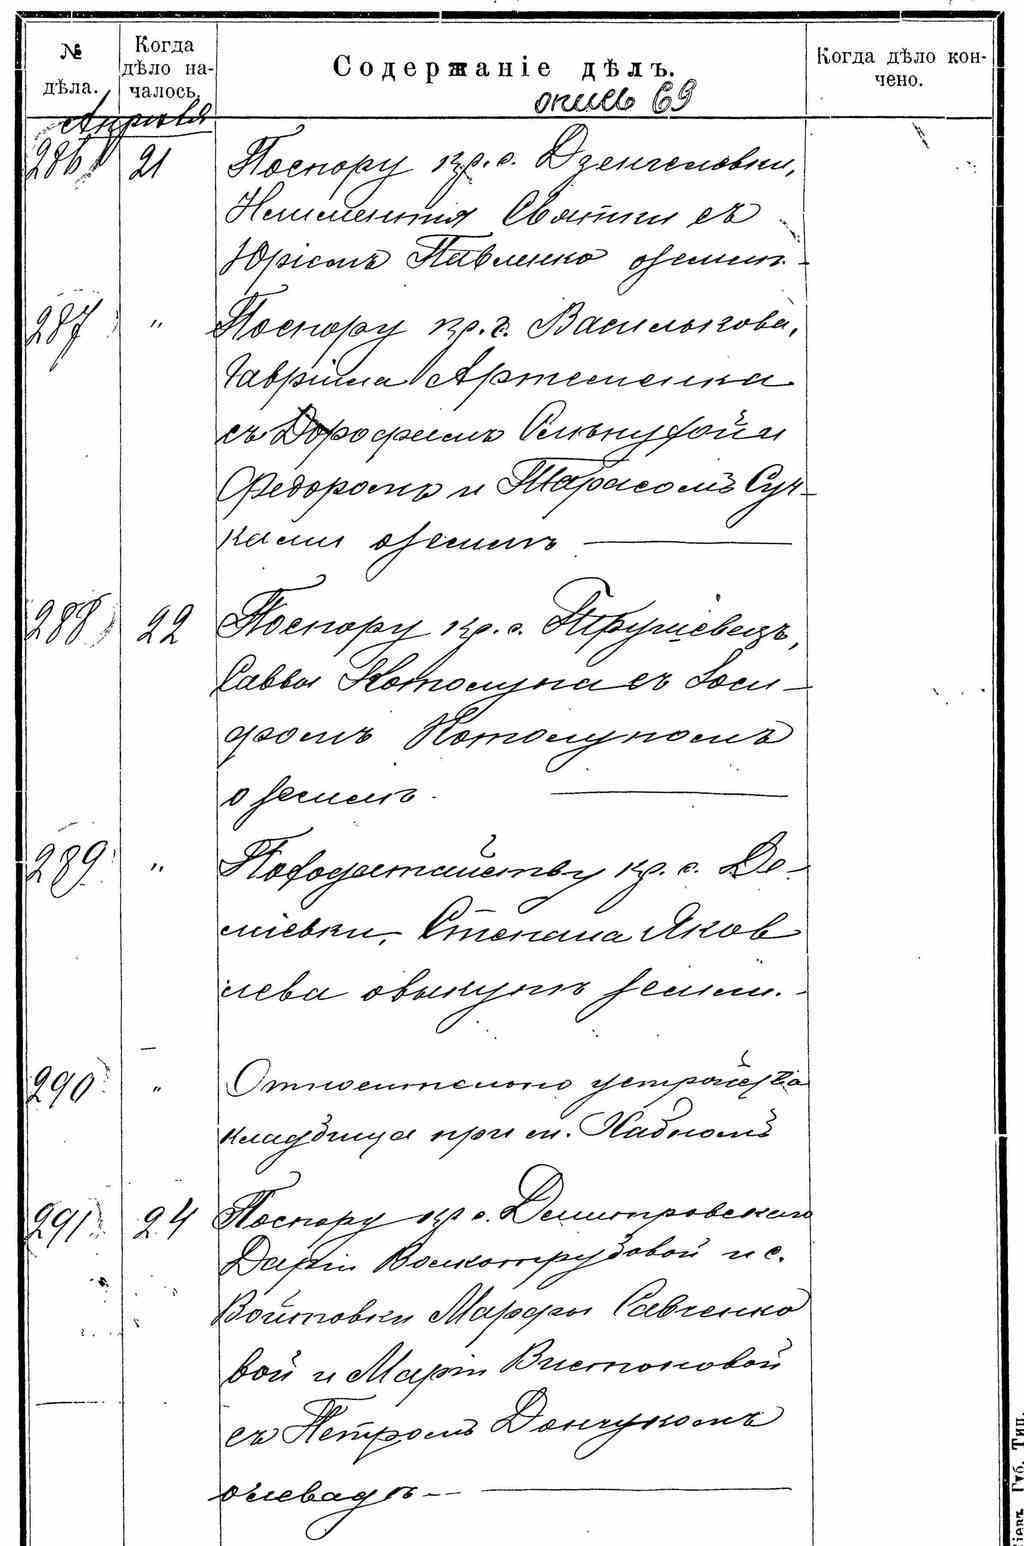 № дѣла.
Когда дѣло началось.
Содержаніе дѣлъ.
Когда дѣло кончено.
опись 69
Апрѣля
286 21 По спору кр. с. Дзенгелевки,
Климентія Святки съ
Юріемъ Павленко о земл.
287 " По спору кр. г. Василькова,
Гавріила Артеменка
съ Дорофеемъ и
Федоромъ и Тарасомъ Суч-
ками о землѣ
288 22 По спору кр. с. Трушевецъ,
Саввы Котолупа съ Іоси-
фомъ Котолупомъ
о землѣ
289 " По ходатайству кр. с. Де-
міевки, Степана Яков
лева о выкупѣ земли.
290 " Относительно устройства
кладбища при м. Хабномъ
291 24 По спору кр. с. Демитровскаго
Даріи Волкотрубовой и с.
Войтовки Марфы Савченко
вой и Маріи
съ Петромъ Дончукомъ
о левадѣ
Губ. Тип.